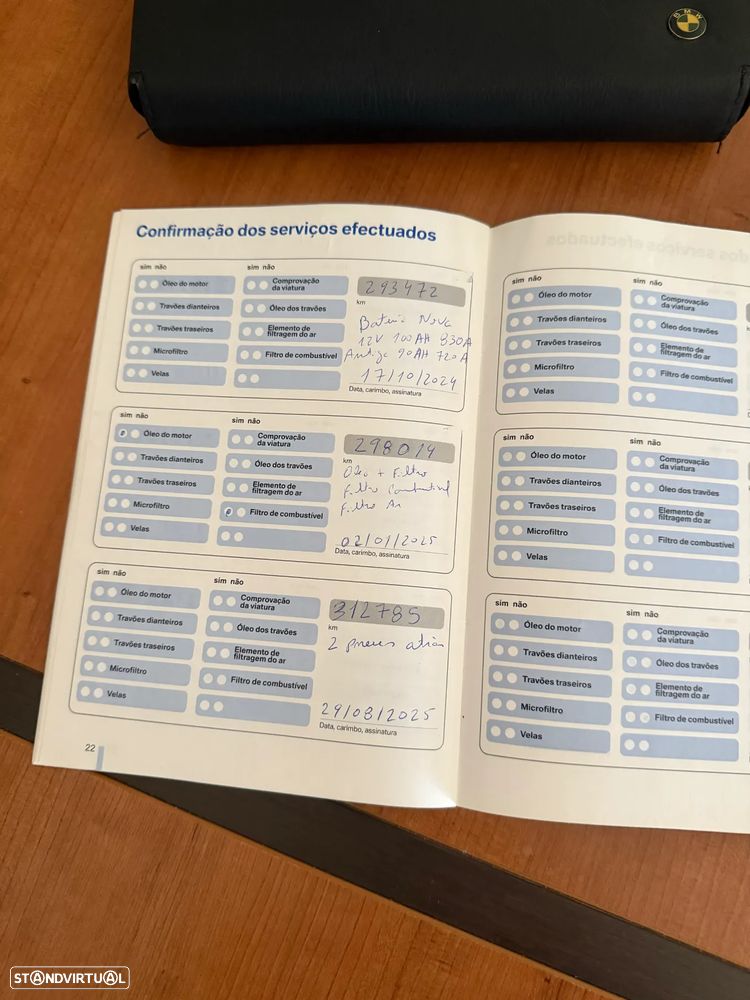 BMW
Confirmação dos serviços efectuados
sim não
sim não
Óleo do motor
Travões dianteiros
Travões traseiros
Microfiltro
Velas
Comprovação
da viatura
Óleo dos travões
Elemento de
filtragem do ar
Filtro de combustível
293472
km
Bateria Nova
12V 100AH 830A
Antiga 90AH 720A
17/10/2024
Data, carimbo, assinatura
sim não
sim não
Óleo do motor
Travões dianteiros
Travões traseiros
Microfiltro
Velas
Comprovação
da viatura
Óleo dos travões
Elemento de
filtragem do ar
Filtro de combustível
298014
km
Óleo + Filtro
Filtro Combustível
Filtro Ar
02/01/2025
Data, carimbo, assinatura
sim não
sim não
Óleo do motor
Travões dianteiros
Travões traseiros
Microfiltro
Velas
Comprovação
da viatura
Óleo dos travões
Elemento de
filtragem do ar
Filtro de combustível
312785
km
2 pneus atras
29/08/2025
Data, carimbo, assinatura
22
sim não
sim não
Óleo do motor
Travões dianteiros
Travões traseiros
Microfiltro
Velas
Comprovação
da viatura
Óleo dos travões
Elemento de
filtragem do ar
Filtro de combustível
sim não
sim não
Óleo do motor
Travões dianteiros
Travões traseiros
Microfiltro
Velas
Comprovação
da viatura
Óleo dos travões
Elemento de
filtragem do ar
Filtro de combustível
sim não
sim não
Óleo do motor
Travões dianteiros
Travões traseiros
Microfiltro
Velas
Comprovação
da viatura
Óleo dos travões
Elemento de
filtragem do ar
Filtro de combustível
STANDVIRTUAL